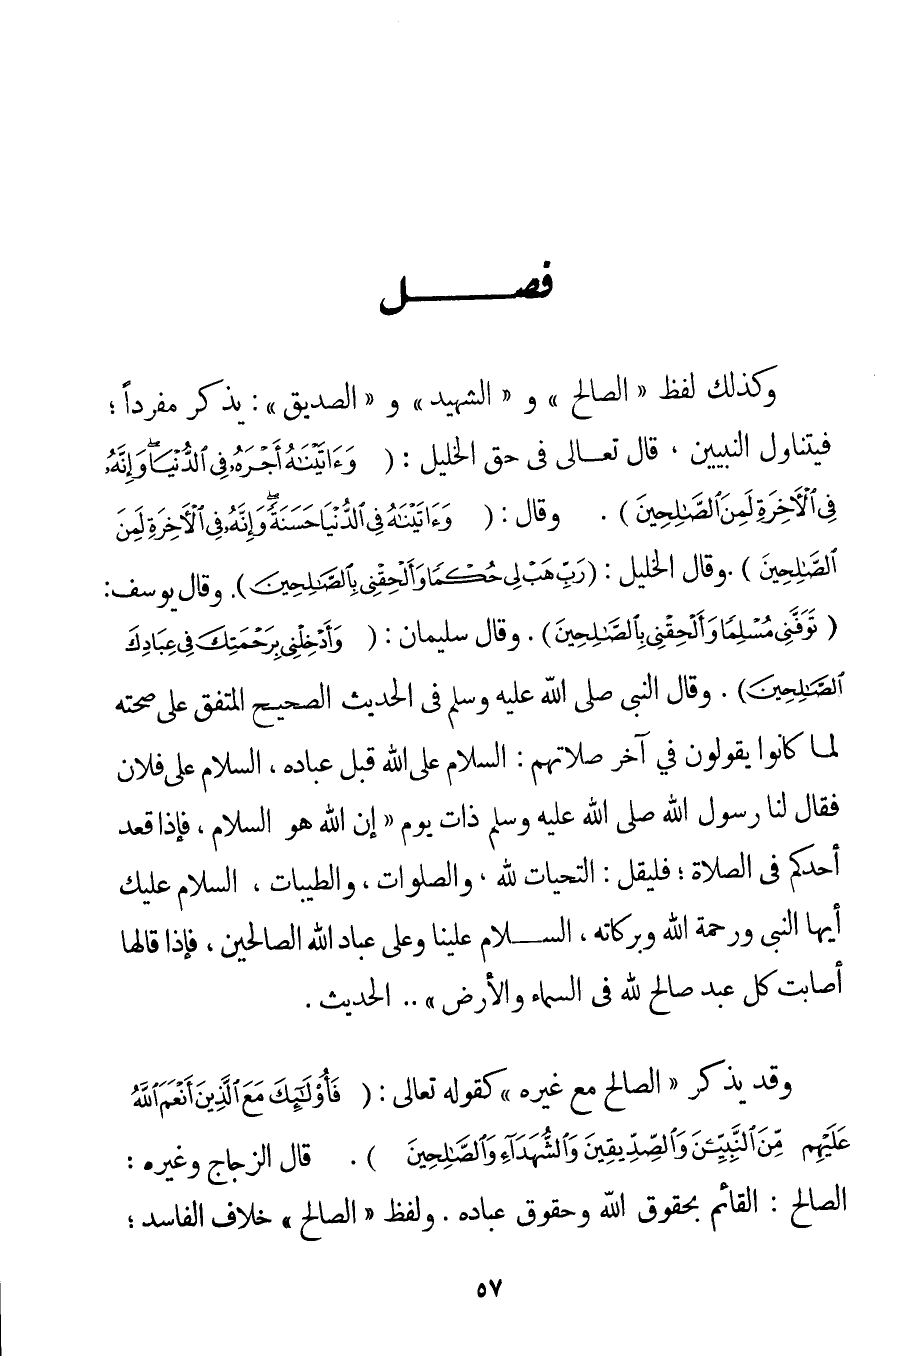 فصـــــــل
وكذلك لفظ « الصالح » و « الشهيد » و « الصديق » : يذكر مفرداً ؛
فيتناول النبيين ، قال تعـالى فى حق الخليل : ( وَءَاتَيْنَٰهُ أَجْرَهُۥ فِى ٱلدُّنْيَا ۖ وَإِنَّهُۥ
فِى ٱلْأَخِرَةِ لَمِنَ ٱلصَّٰلِحِينَ ) . وقال : ( وَءَاتَيْنَٰهُ فِى ٱلدُّنْيَا حَسَنَةً ۖ وَإِنَّهُۥ فِى ٱلْأَخِرَةِ لَمِنَ
ٱلصَّٰلِحِينَ ) . وقال الخليل : ( رَبِّ هَبْ لِى حُكْمًا وَأَلْحِقْنِى بِٱلصَّٰلِحِينَ ) . وقال يوسف :
( تَوَفَّنِى مُسْلِمًا وَأَلْحِقْنِى بِٱلصَّٰلِحِينَ ) . وقال سليمان : ( وَأَدْخِلْنِى بِرَحْمَتِكَ فِى عِبَادِكَ
ٱلصَّٰلِحِينَ ) . وقال النبى صلى الله عليه وسلم فى الحديث الصحيح المتفق على صحته
لمـا كانوا يقولون في آخر صلاتهم : السلام على الله قبل عباده ، السلام على فلان
فقال لنا رسول الله صلى الله عليه وسلم ذات يوم « إن الله هو السلام ، فإذا قعد
أحدكم فى الصلاة ؛ فليقل : التحيات لله ، والصلوات ، والطيبات ، السلام عليك
أيها النبى ورحمة الله وبركاته ، الســـلام علينا وعلى عباد الله الصالحين ، فإذا قالها
أصابت كل عبد صالح لله فى السماء والأرض » .. الحديث .
وقد يذكر « الصالح مع غيره » كقوله تعالى : ( فَأُو۟لَٰٓئِكَ مَعَ ٱلَّذِينَ أَنْعَمَ ٱللَّهُ
عَلَيْهِم مِّنَ ٱلنَّبِيِّـۧنَ وَٱلصِّدِّيقِينَ وَٱلشُّهَدَآءِ وَٱلصَّٰلِحِينَ ) . قال الزجاج وغيره :
الصالح : القائم بحقوق الله وحقوق عباده . ولفظ « الصالح » خلاف الفاسد ؛
٥٧